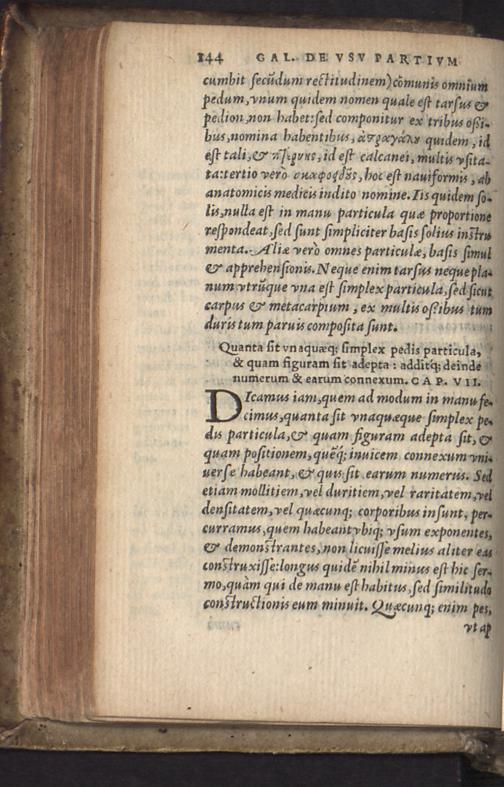 144 GAL. DE VSV PARTIVM
cumbit secūdum rectitudinem) cōmunis omnium
pedum, vnum quidem nomen quale est tarsus &
pedion non habet: sed componitur ex tribus ossi-
bus, nomina habentibus, ἀστραγάλου quidem, id
est tali, & πτέρνης, id est calcanei, multis vsita-
ta: tertio verò σκαφοειδοῦς, hoc est nauiformis, ab
anatomicis medicis indito nomine. Iis quidem so-
lis, nulla est in manu particula quæ proportione
respondeat, sed sunt simpliciter basis solius instru
menta. Aliæ verò omnes particulæ, basis simul
& apprehensionis. Neque enim tarsus neque pla-
num vtrūque vna est simplex particula, sed sicut
carpus & metacarpium, ex multis ossibus tum
duris tum paruis composita sunt.
Quanta sit vnaquæq; simplex pedis particula,
& quam figuram sit adepta: additq; deinde
numerum & earum connexum. CAP. VII.
DIcamus iam, quem ad modum in manu fe-
cimus, quanta sit vnaquæque simplex pe-
dis particula, & quam figuram adepta sit, &
quam positionem, quēq; inuicem connexum vni-
uersæ habeant, & quis sit earum numerus. Sed
etiam mollitiem, vel duritiem, vel raritatem, vel
densitatem, vel quæcunq; corporibus insunt, per-
curramus, quem habeant vbiq; vsum exponentes,
& demonstrantes, non licuisse melius aliter eas
construxisse: longus quidē nihil minus est hic ser-
mo, quàm qui de manu est habitus, sed similitudo
constructionis eum minuit. Quæcunq; enim pes,
vt ap